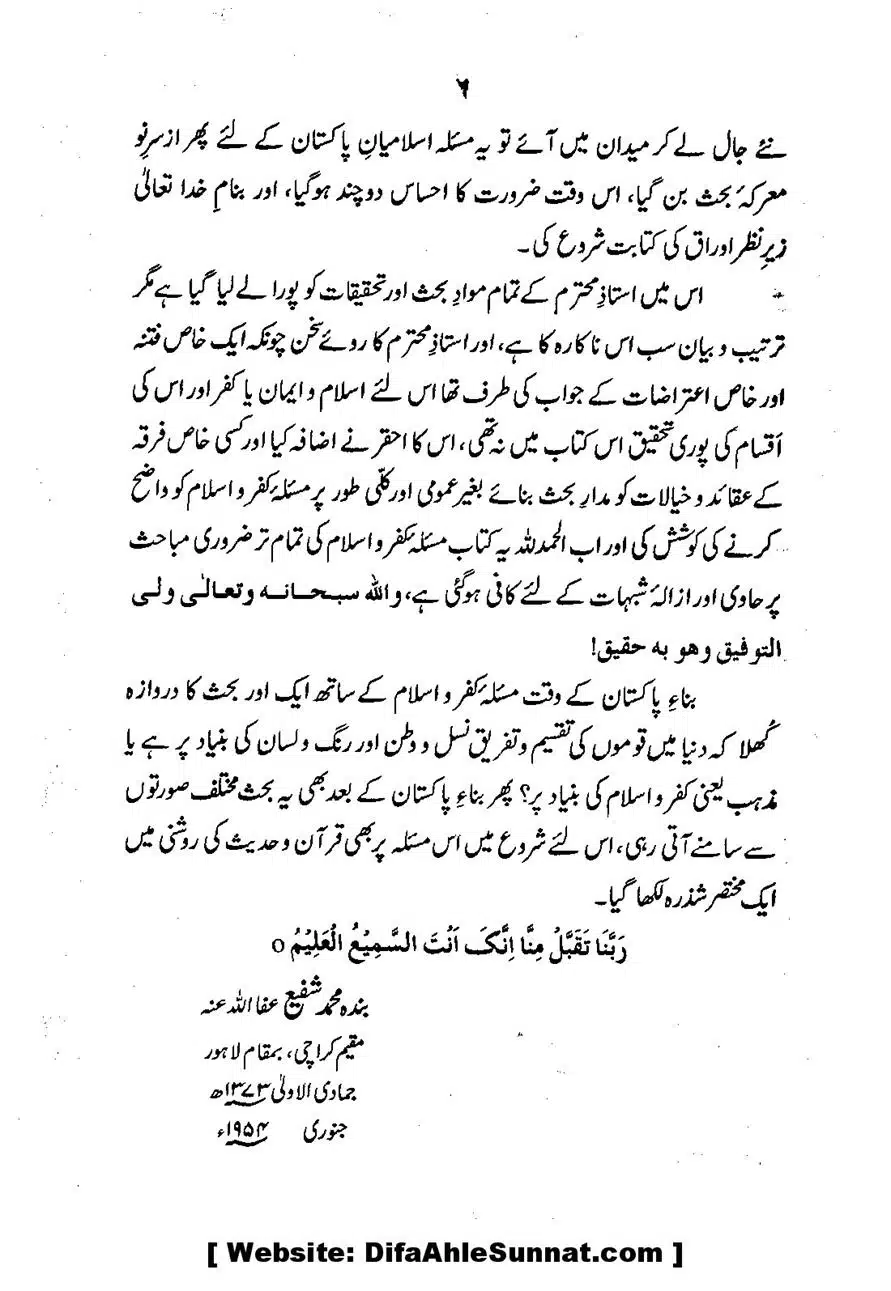 ۶
نئے جال لے کر میدان میں آئے تو یہ مسئلہ اسلامیانِ پاکستان کے لئے پھر از سرِنو
معرکۂ بحث بن گیا، اس وقت ضرورت کا احساس دوچند ہوگیا، اور بنامِ خدا تعالیٰ
زیرِ نظر اوراق کی کتابت شروع کی۔
اس میں استاذِ محترم کے تمام موادِ بحث اور تحقیقات کو پورا لے لیا گیا ہے مگر
ترتیب و بیان سب اس ناکارہ کا ہے، اور استاذِ محترم کا روئے سخن چونکہ ایک خاص فتنہ
اور خاص اعتراضات کے جواب کی طرف تھا اس لئے اسلام و ایمان یا کفر اور اس کی
اَقسام کی پوری تحقیق اس کتاب میں نہ تھی، اس کا احقر نے اضافہ کیا اور کسی خاص فرقہ
کے عقائد و خیالات کو مدارِ بحث بنائے بغیر عمومی اور کلّی طور پر مسئلۂ کفر و اسلام کو واضح
کرنے کی کوشش کی اور اب الحمدللہ یہ کتاب مسئلۂ کفر و اسلام کی تمام تر ضروری مباحث
پر حاوی اور ازالۂ شبہات کے لئے کافی ہوگئی ہے، واللہ سبحانہ وتعالٰی ولی
التوفیق وھو بہ حقیق!
بناءِ پاکستان کے وقت مسئلۂ کفر و اسلام کے ساتھ ایک اور بحث کا دروازہ
کُھلا کہ دنیا میں قوموں کی تقسیم و تفریق نسل و وطن اور رنگ و لسان کی بنیاد پر ہے یا
مذہب یعنی کفر و اسلام کی بنیاد پر؟ پھر بناءِ پاکستان کے بعد بھی یہ بحث مختلف صورتوں
سے سامنے آتی رہی، اس لئے شروع میں اس مسئلہ پر بھی قرآن و حدیث کی روشنی میں
ایک مختصر شذرہ لکھا گیا۔
رَبَّنَا تَقَبَّلْ مِنَّا اِنَّکَ اَنْتَ السَّمِیْعُ الْعَلِیْمُ o
بندہ محمد شفیع عفا اللہ عنہ
مقیم کراچی، بمقام لاہور
جمادی الاولیٰ ۱۳۷۳ھ
جنوری ۱۹۵۴ء
[ Website: DifaAhleSunnat.com ]